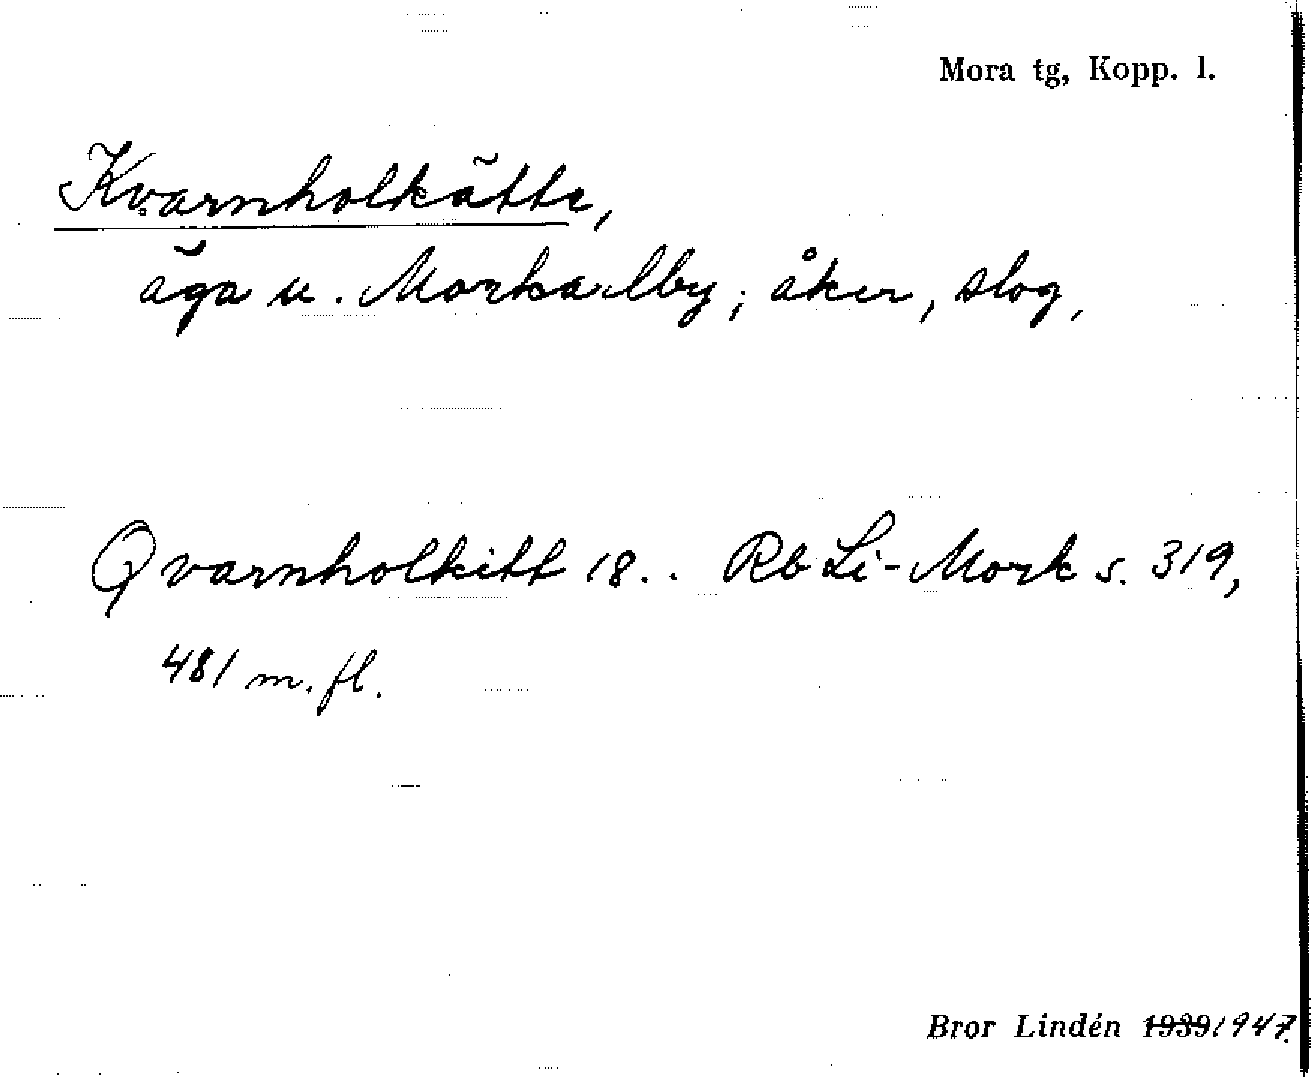 Mora tg, Kopp. l.
Kvarnholkätte,
äga u. Morkarlby; åker, slog,
Qvarnholkitt 18.. Rb Li-Mork s. 319,
481 m. fl.
Bror Lindén 1939 1947.